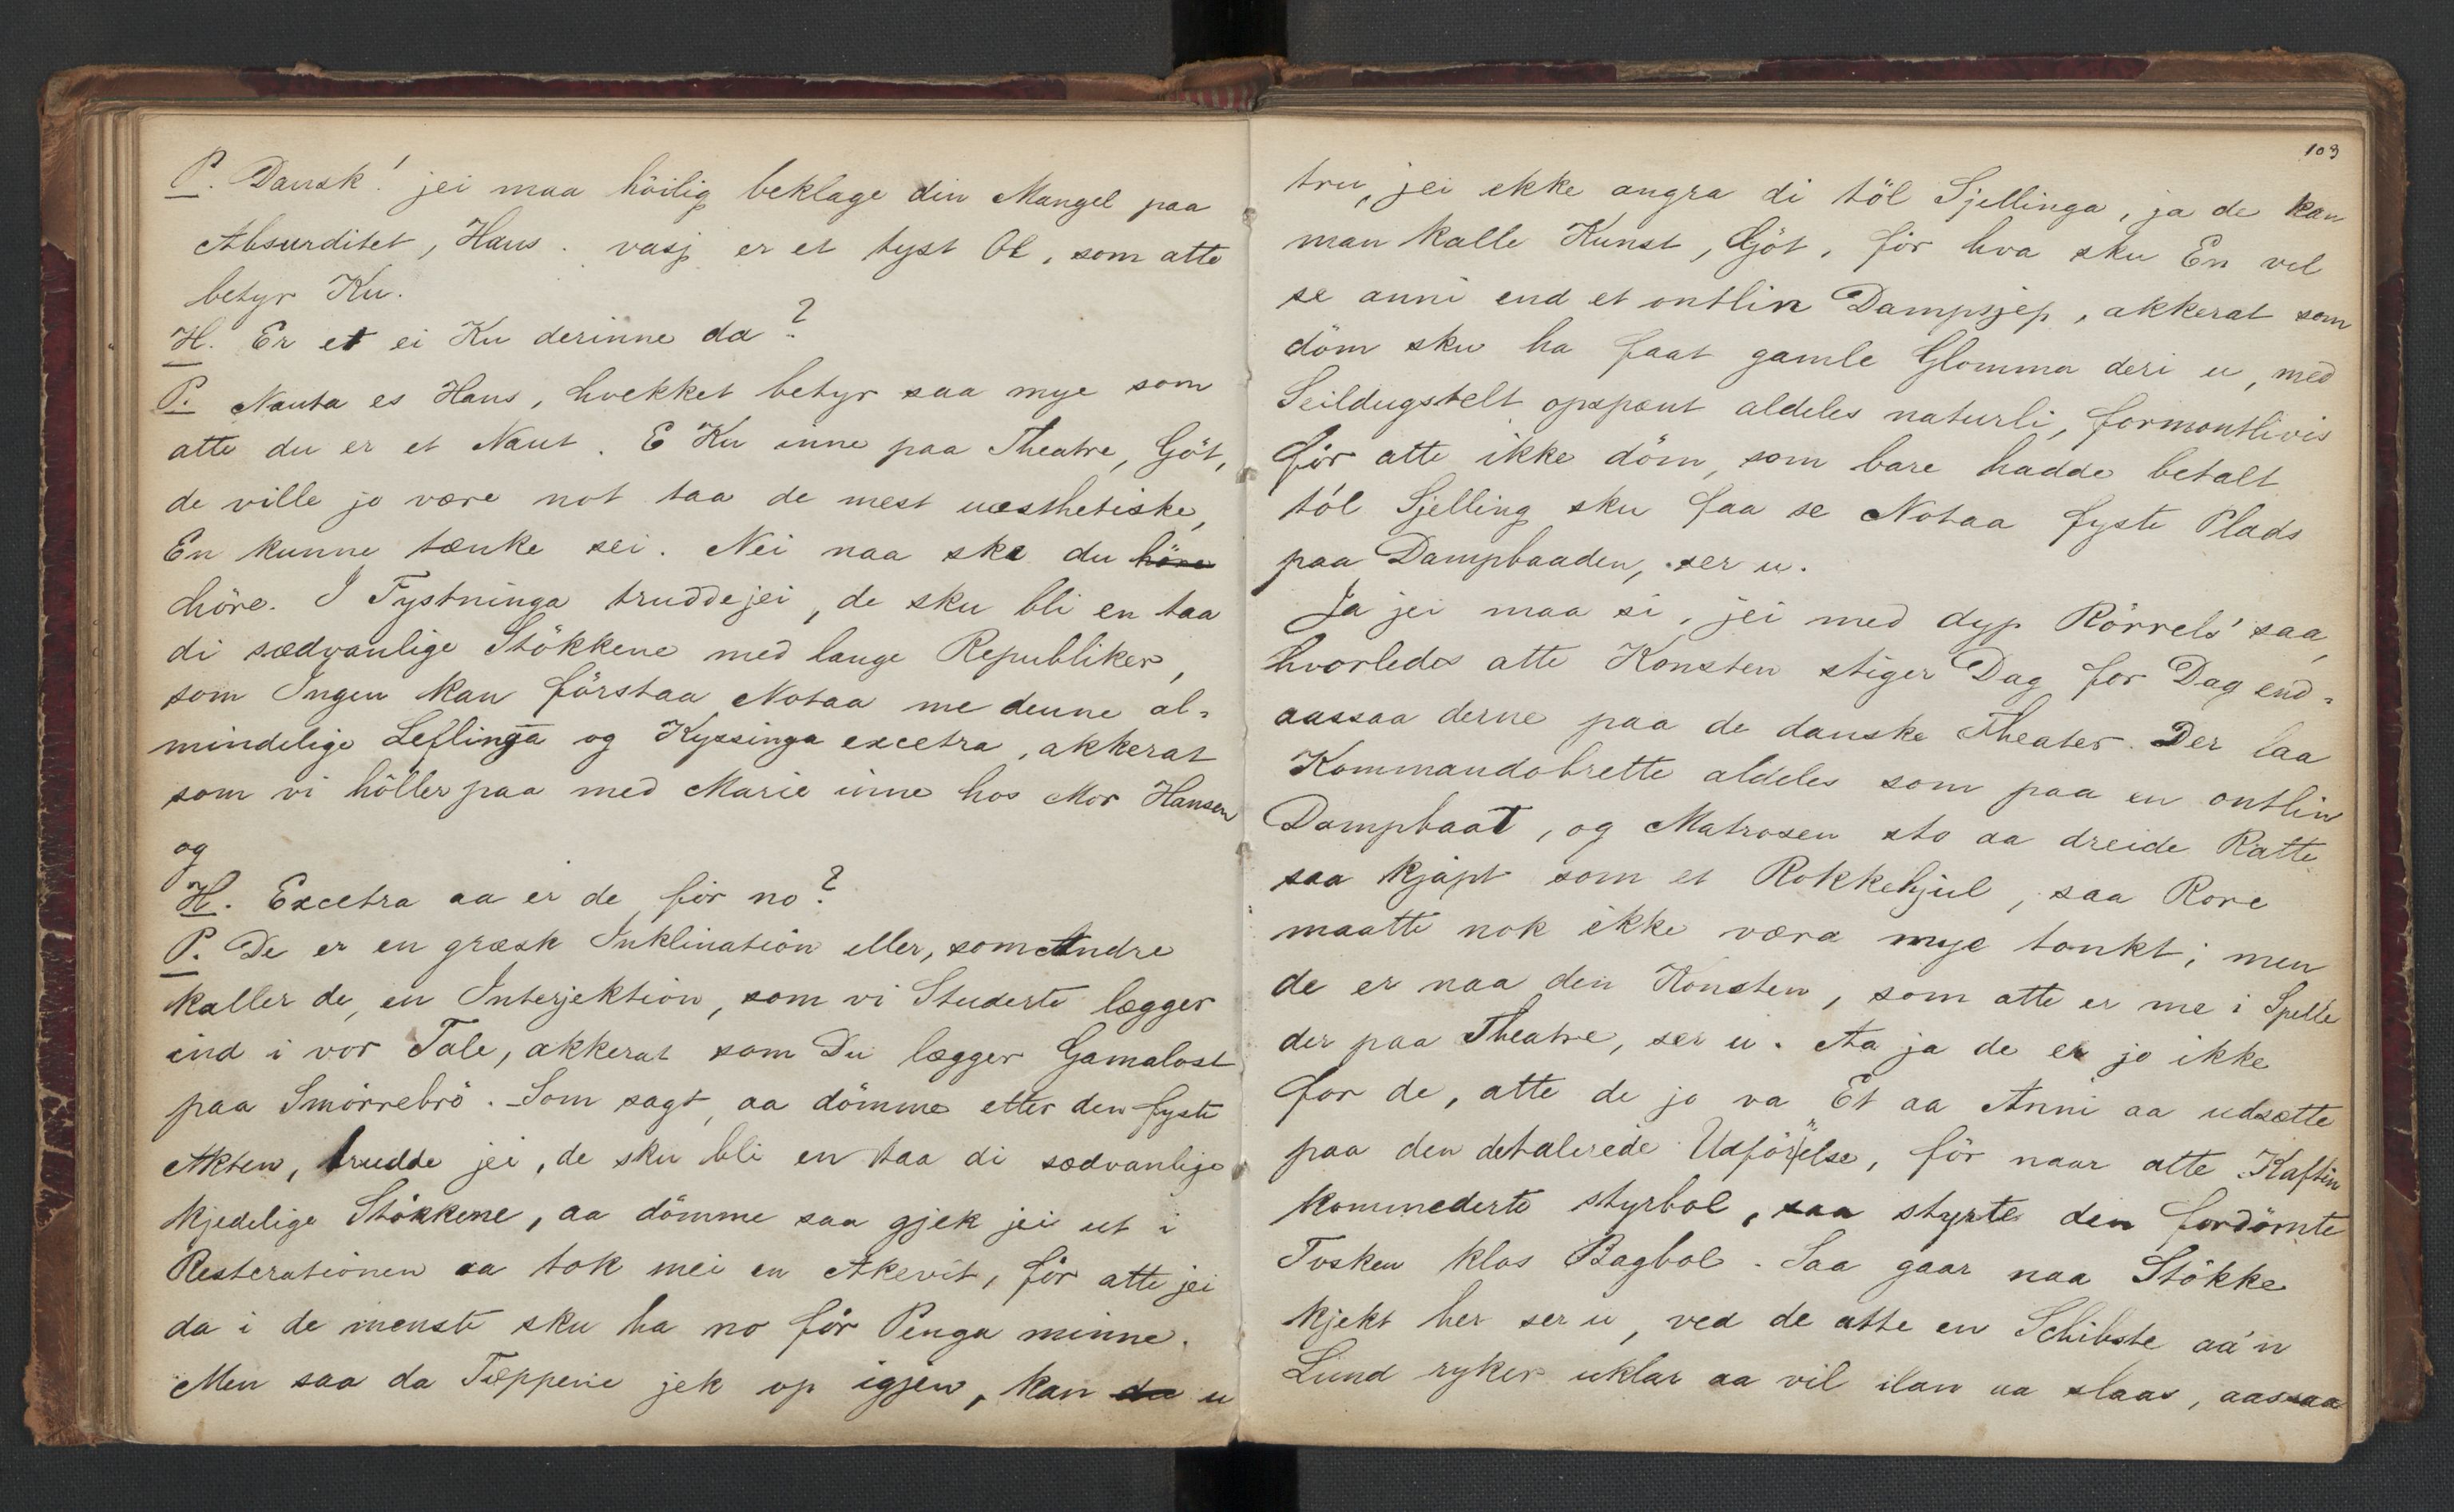 P. Dansk! jei maa höilig beklage din Mangel paa
Absurditet, Hans. vasj er et tyst Ol, som atte
betyr Ku.
H. Er et ei Ku derinne da?
P. Nauta es Hans, hvekket betyr saa mye som
atte du er et Naut. E Ku inne paa Theatre, Göt,
de ville jo være not taa de mest uæsthetiske,
En kunne tænke sei. Nei naa ska du höre
höre. I Fystninga trudde jei, de sku bli en taa
di sædvanlige Stökkene med lange Republiker,
som Ingen kan förstaa Notaa me denne al-
mindelige Leflinga og Kyssinga excetra, akkerat
som vi höller paa med Marie inne hos Mor Hansen
og
H. Excetra aa er de för no?
P. De er en græsk Inklination eller, som Andre
kaller de, en Interjektion, som vi Studerte lægger
ind i vor Tale, akkerat som Du lægger Gamalost
paa Smörrebrö. Som sagt, aa dömme etter den fyste
Akten, trudde jei, de sku bli en taa di sædvanlige
kjedelige Stökkene, aa dömme saa gjek jei ut i
Restcrationen aa tok mei en Akevit, för atte jei
da i de menste sku ha no för Penga minne.
Men saa da Tæppene jek op igjen, kan du u
103
tru, jei ekke angra di töl Sjellinga, ja de kan
man kalle Kunst, Göt, för hva sku En vel
se anni end et ontlin Dampsjep, akkerat som
döm sku ha faat gamle Glomma deri u, med
Seildugstelt opspænt aldeles naturli, formontlivis
för atte ikke döm, som bare hadde betalt
töl Sjelling sku faa se Notaa fyste Plads
paa Dampbaaden, ser u.
Ja jei maa si, jei med dyp Rörrels' saa,
hvorledes atte Konsten stiger Dag for Dag end-
aassaa derne paa de danske Theater. Der laa
Kommandobrette aldeles som paa en ontlin
Dampbaat, og Matrosen sto aa dreide Ratte
saa kjapt som et Rokkehjul, saa Rore
maatte nok ikke væra mye tonkt; men
de er naa den Konsten, som atte er me i Spelle
der paa Theatre, ser u. Aa ja de er jo ikke
for de, atte de jo va Et aa Anni aa udsætte
paa den detalerede Udförelse, för naar atte Kaftin
kommederte styrbol, saa styrte den fordömte
Tosken klos Bagbol. Saa gaar naa Stökke
kjekt her ser u, ved de atte en Schibste aa'n
Lund ryker uklar aa vil ilan aa slaas, aassaa